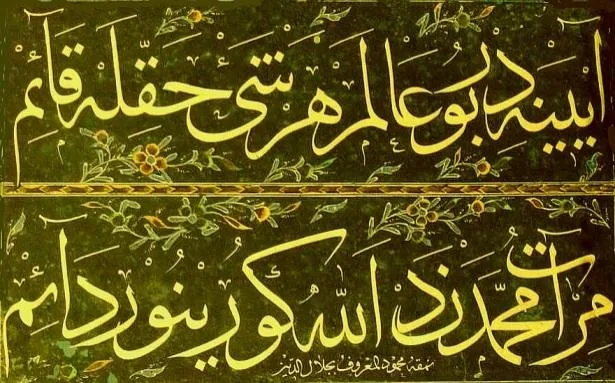 آیینه در بو عالم هر شئ حقله قائم
مرآت محمددن الله كورینور دائم
نمقه محمود المعروف بجلال الدین